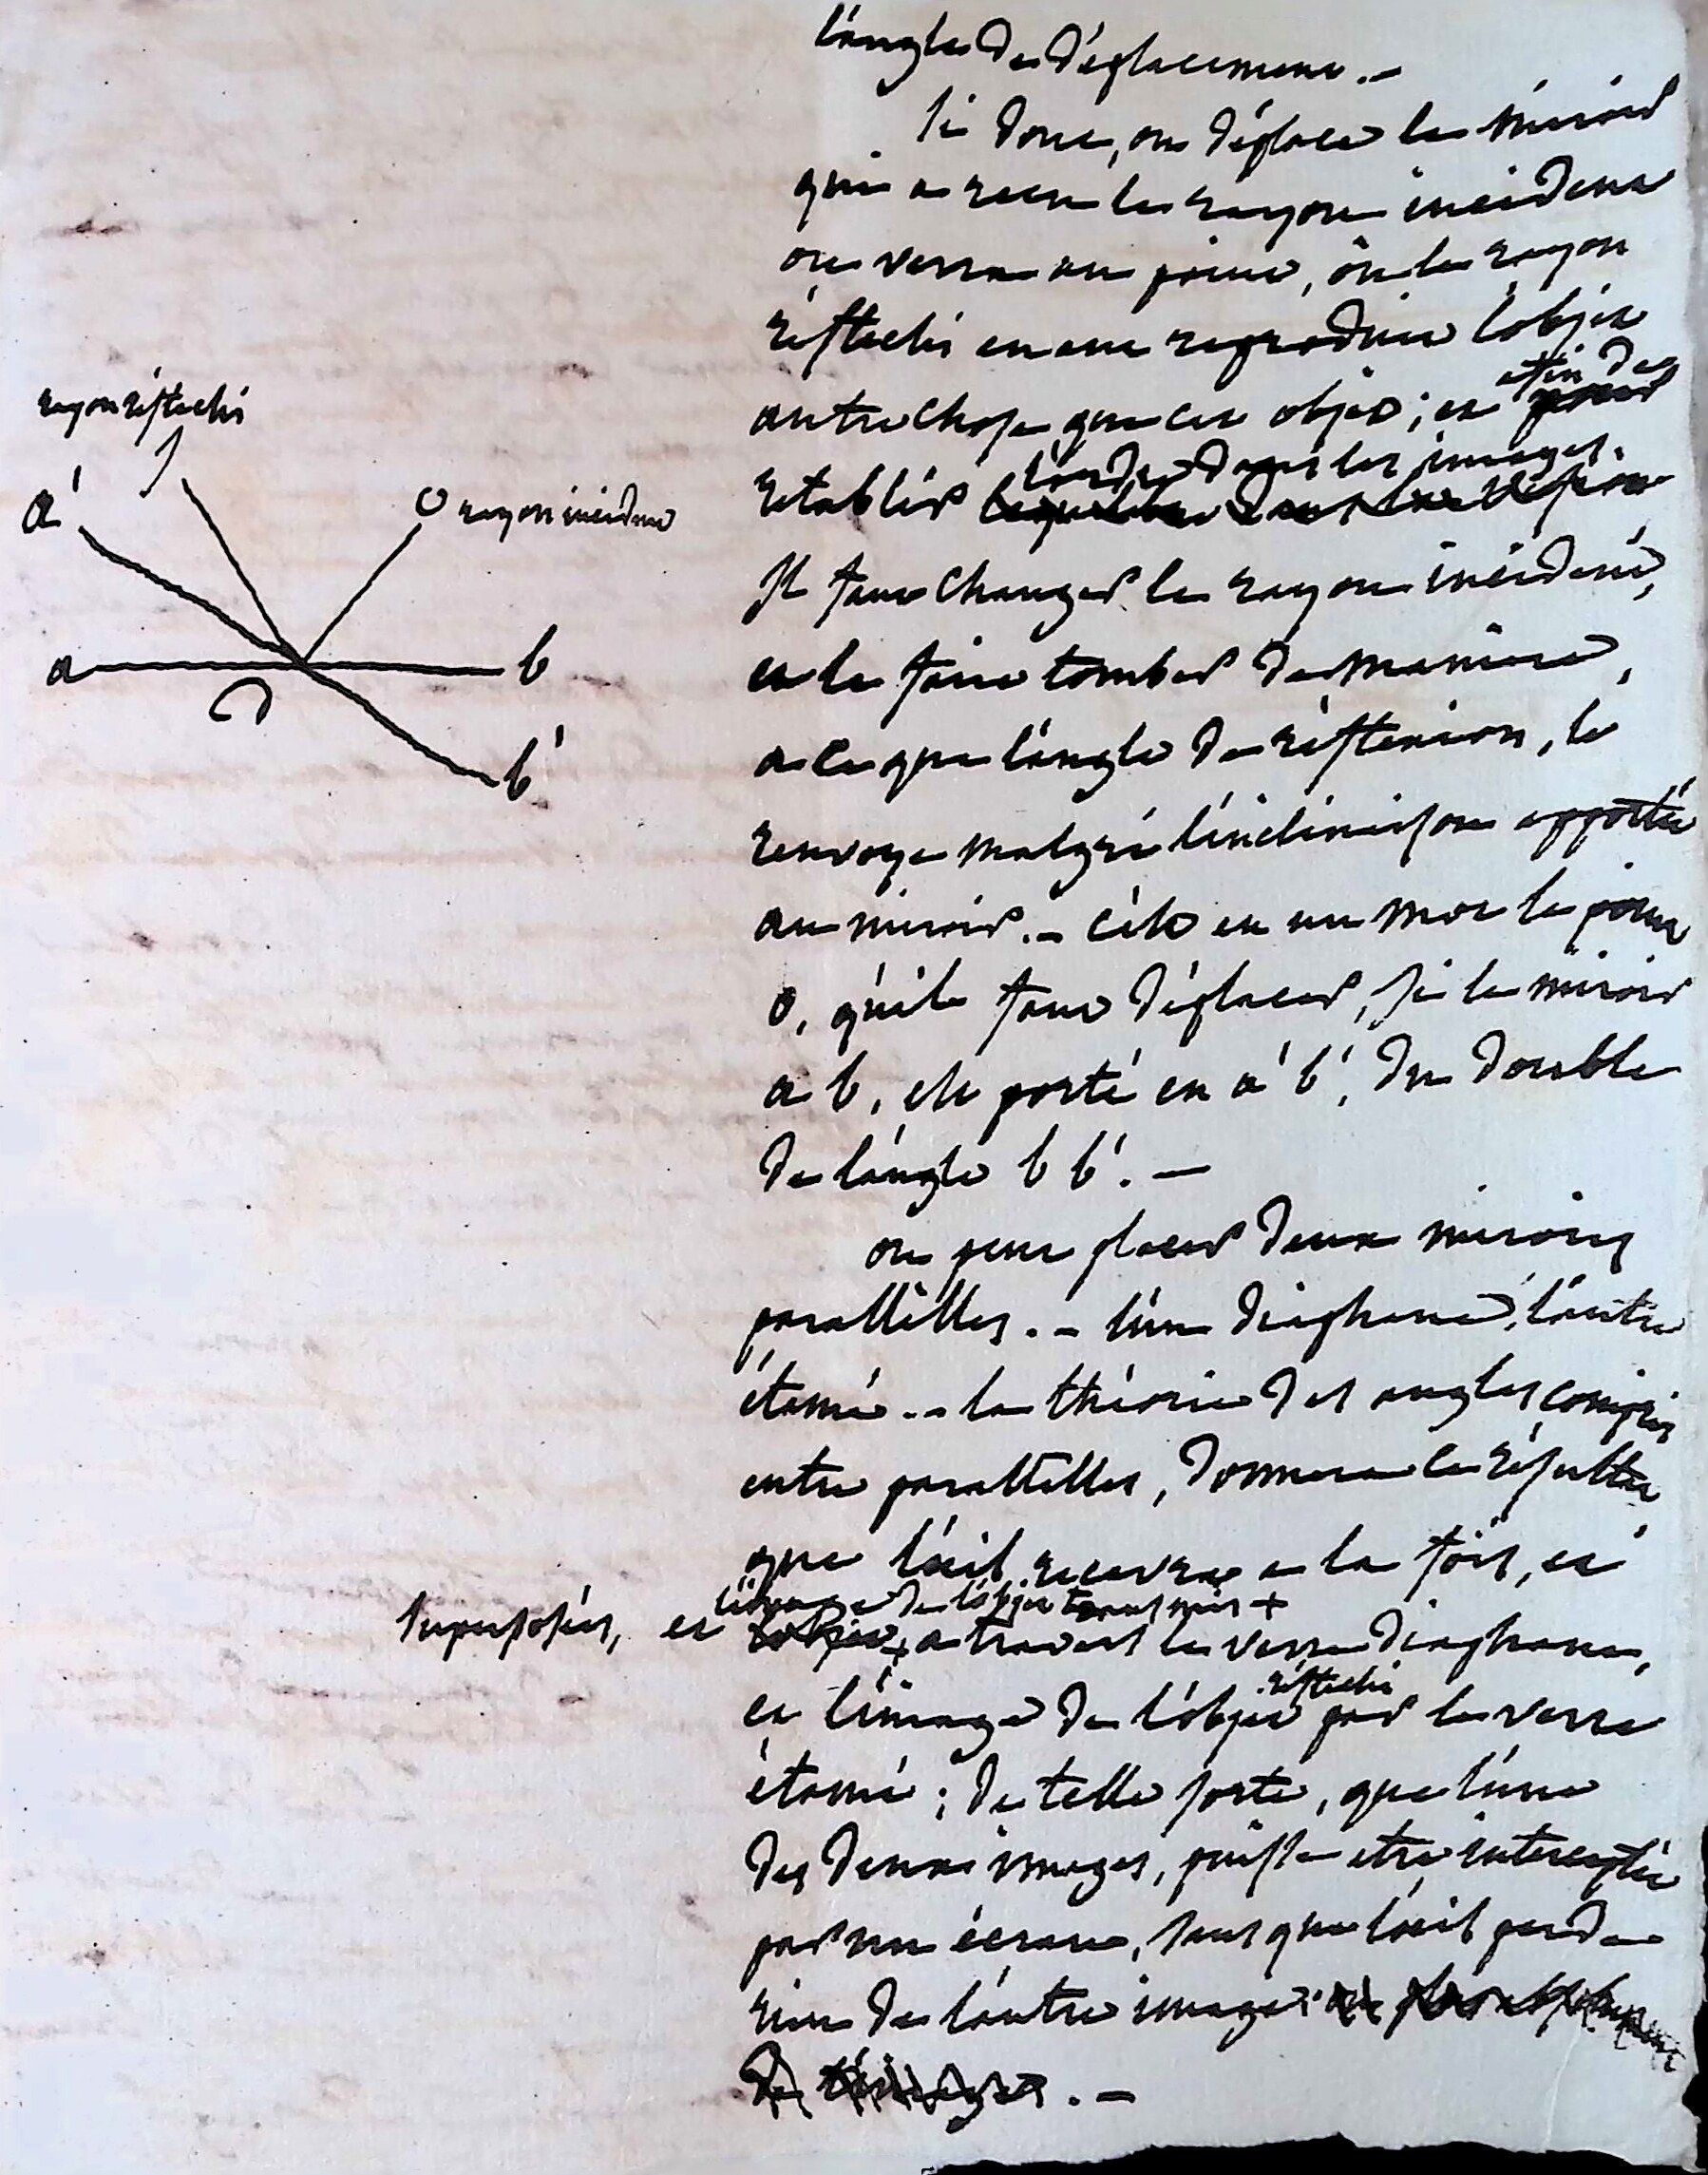 l'angle de déplacement. –
Si donc, on déplace le miroir
qui a recu le rayon incident
on verra au point, où le rayon
réflechi en ont reproduire l'objet
autre chose que cet objet; et afin de
rétablir l'ordre dans les images.
Il faut changer le rayon incident,
et le faire tomber de maniere,
a ce que l'angle de réflexion, le
renvoye malgré l'inclinaison apportée
au miroir. – c'est en un mot le point
O, qu'il faut déplacer, si le miroir
a b, est porté en a' b', du double
de l'angle b b'. –
on peut placer deux miroirs
parallèlles. – l'un diaphane, l'autre
étamé. – la théorie des angles compris
entre parallelles, donnera ce résultat
que l'œil recevra a la fois, et
superposés, et l'image de l'objet transmis + a travers le verre diaphane,
et l'image de l'objet réflechi par le verre
étamé; de telle sorte, que l'une
des deux images, puisse etre interceptée
par un écran, sans que l'œil perde
rien de l'autre image. –
rayon réflechi
a'
O rayon incident
a
b
b'